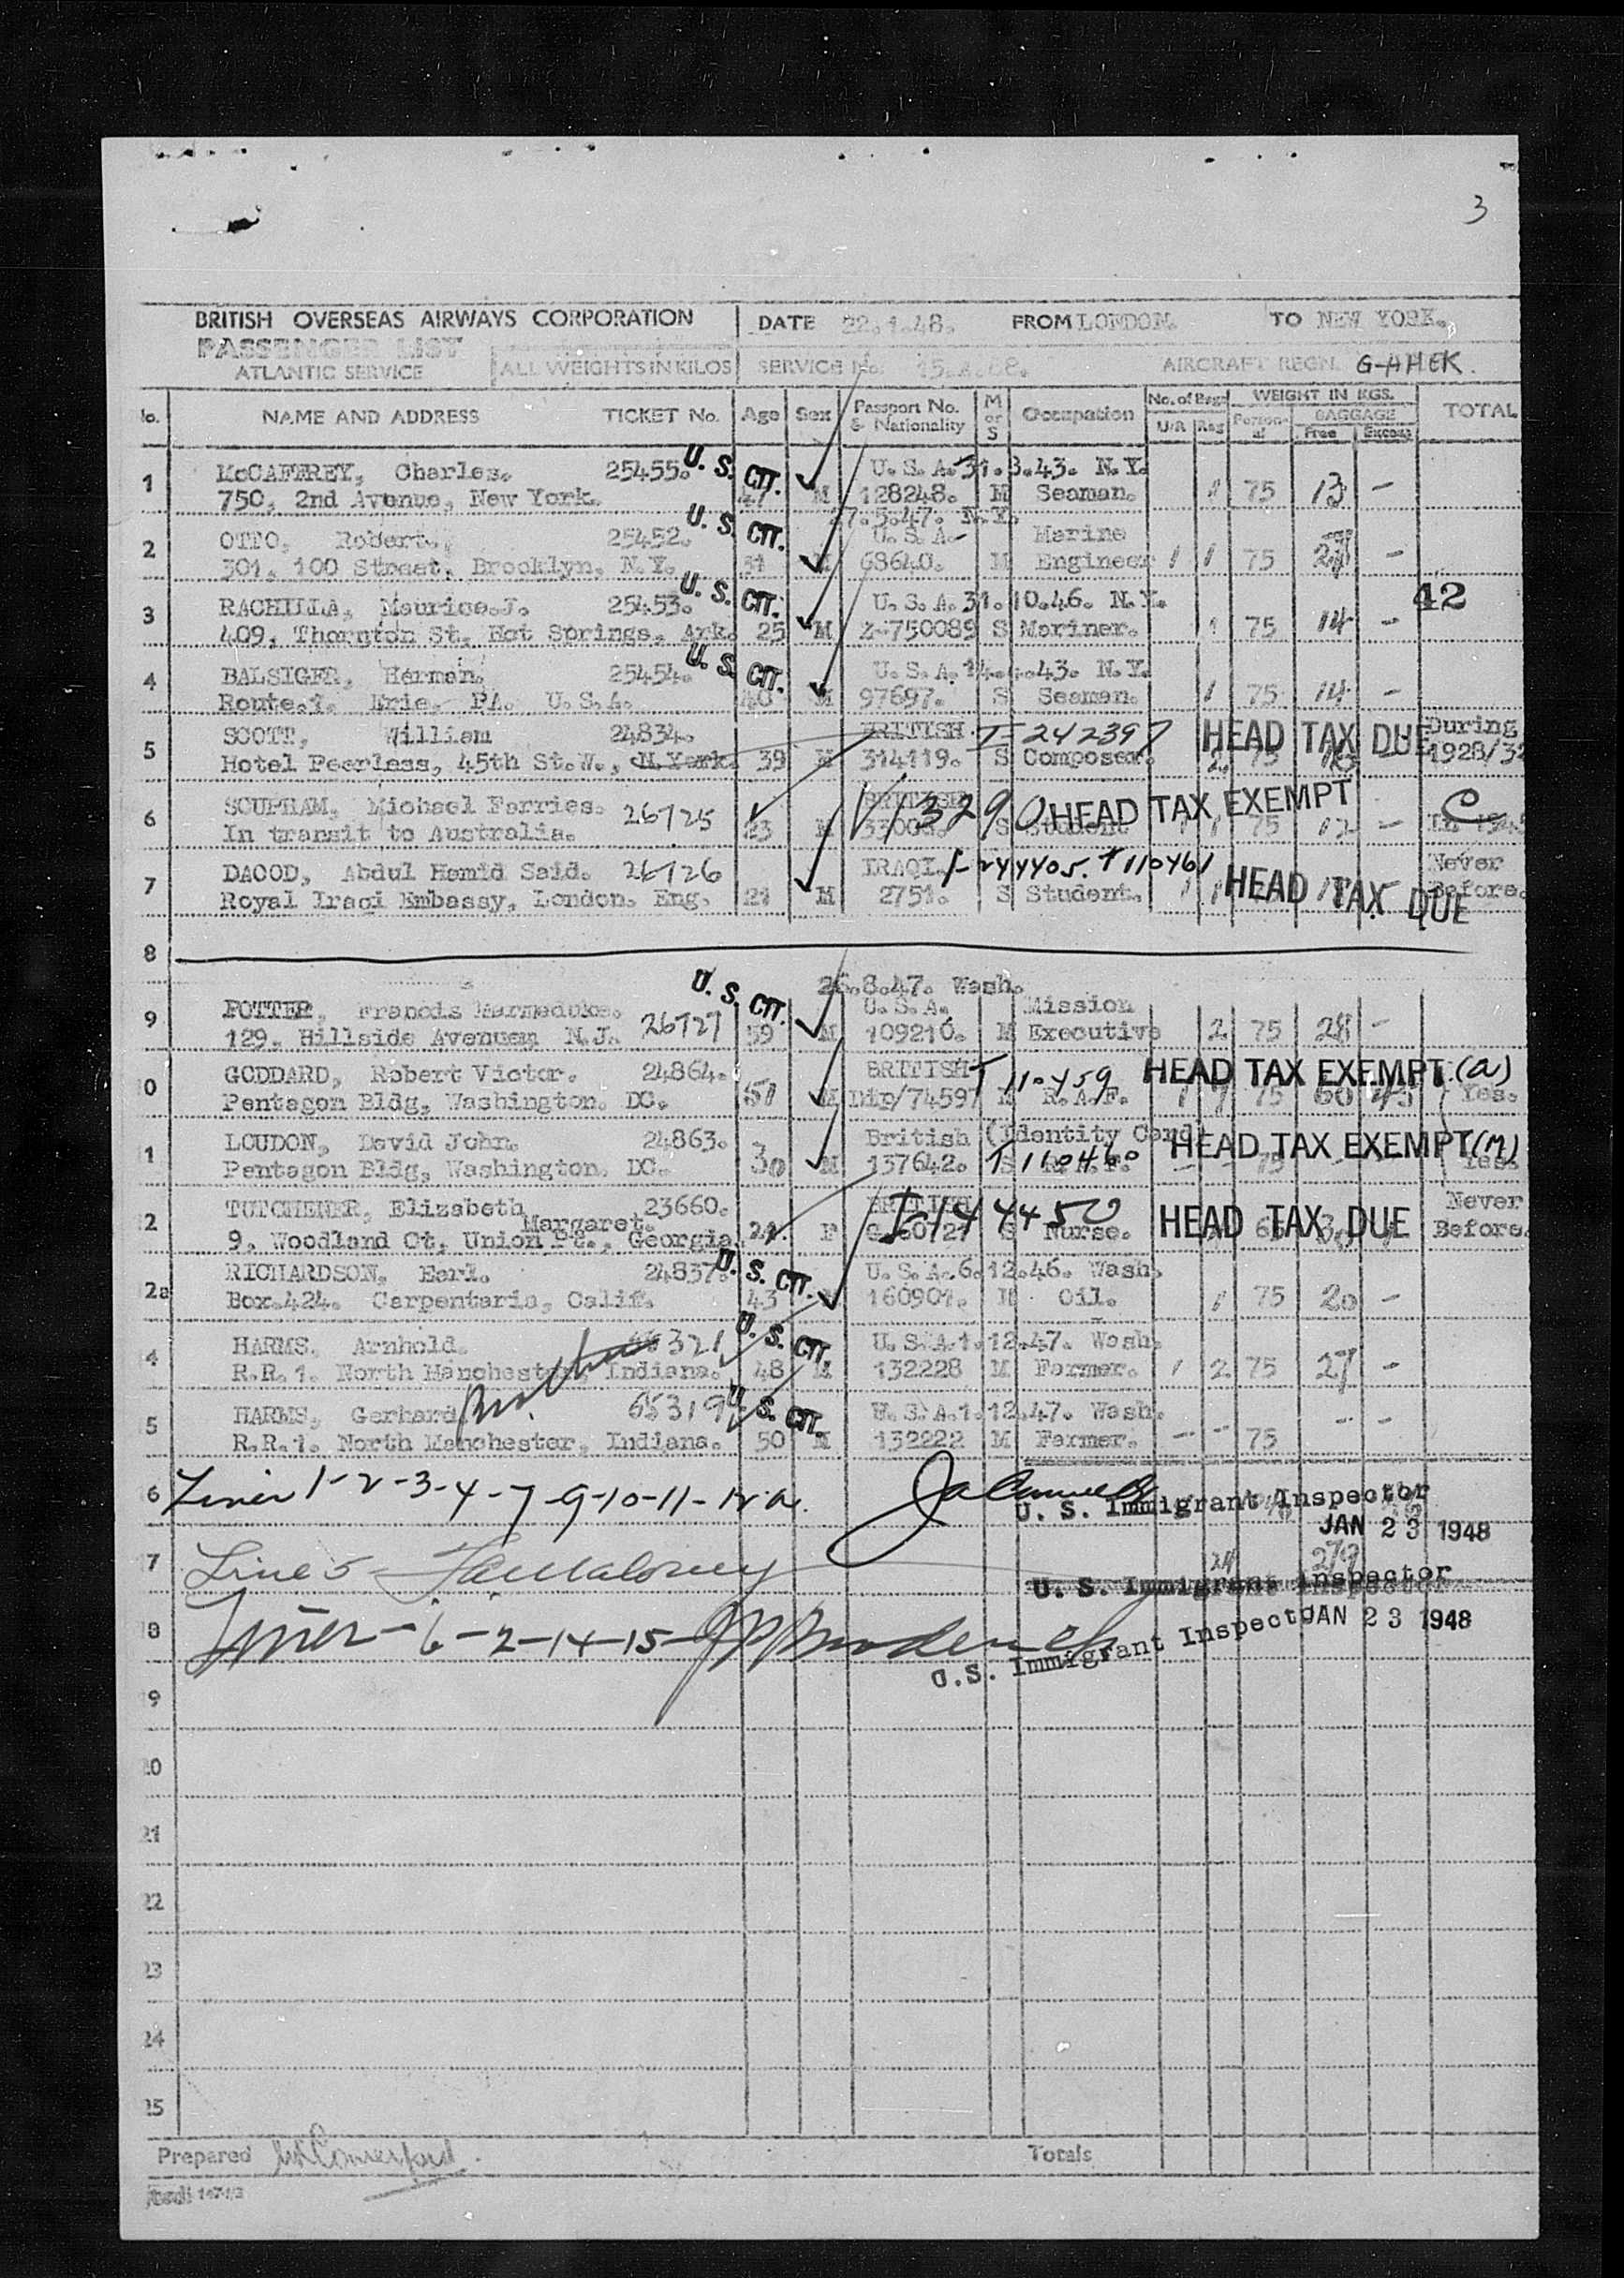 3
BRITISH OVERSEAS AIRWAYS CORPORATION DATE 22.1.48. FROM LONDON. TO NEW YORK.
PASSENGER LIST
ATLANTIC SERVICE ALL WEIGHTS IN KILOS SERVICE No. AIRCRAFT REGN. G-AHEK.
No. NAME AND ADDRESS TICKET No. Age Sex Passport No. & Nationality M or S Occupation No. of Bags U/R Reg WEIGHT IN KGS. Personal BAGGAGE Free Excess TOTAL
1 McCAFFREY, Charles. 25455. U. S. CIT. U.S.A. 31.3.43. N.Y.
750, 2nd Avenue, New York. 47 M 128248. M Seaman. 1 75 13 -
27.5.47. N.Y.
2 OTTO, Robert. 25452. U. S. CIT. U.S.A. Marine
301, 100 Street, Brooklyn, N.Y. 31 M 68640. M Engineer 1 1 75 -
3 RACHILLA, Maurice.J. 25453. U. S. CIT. U.S.A. 31.10.46. N.Y. 42
409, Thornton St, Hot Springs, Ark. 25 M Z-750089 S Mariner. 1 75 14 -
4 BALSIGER, Herman. 25454. U. S. CIT. U.S.A. N.Y.
Route.1. Erie. PA. U.S.A. 40 M 97697. S Seaman. 1 75 14 -
5 SCOTT, William 24834. BRITISH I-242397 HEAD TAX DUE During
Hotel Peerless, 45th St.W., N.York. 39 M 314119. S Composer. 2 75 1928/32
6 SCUPHAM, Michael Ferries. 26725 BRITISH V1 3290 HEAD TAX EXEMPT
In transit to Australia. 23 M S Student 1 1 75 12 -
7 DAOOD, Abdul Hamid Said. 26726 IRAQI. I-244405. T110461 HEAD TAX DUE Never
Royal Iraqi Embassy, London. Eng. 21 M 2751. S Student. 1 1 Before.
8
26.8.47. Wash.
9 POTTER, Francis Marmaduke. 26727 U. S. CIT. U.S.A. Mission
129. Hillside Avenuem N.J. 59 M 109210. M Executive 2 75 28 -
10 GODDARD, Robert Victor. 24864. BRITISH T 110459 HEAD TAX EXEMPT (a)
Pentagon Bldg, Washington. DC. 51 M Dip/74597 M R.A.F. 1 7 75 60 45 Yes.
11 LOUDON, David John. 24863. British (Identity Card) HEAD TAX EXEMPT (M)
Pentagon Bldg, Washington. DC. 30 M 137642. T 110460 S R.A.F. 75 Yes.
12 TUTCHENER, Elizabeth Margaret. 23660. BRITISH I-144450 HEAD TAX DUE Never
9, Woodland Ct, Union Pt., Georgia. 21. F S Nurse. Before.
RICHARDSON, Earl. 24837. U. S. CIT. U.S.A. 6.12.46. Wash.
12a Box.424. Carpentaria, Calif. 43 M 160901. M Oil. 1 75 20 -
14 HARMS, Arnhold. U. S. CIT. U.S.A. 1.12.47. Wash.
R.R.1. North Manchester, Indiana. 48 M 132228 M Farmer. 1 2 75 27 -
Brothers
15 HARMS, Gerhard. 65319 U. S. CIT. U.S.A. 1.12.47. Wash.
R.R.1. North Manchester, Indiana. 50 M 132222 M Farmer. - - 75 - - -
16 Lines 1-2-3-4-7-9-10-11-12-12a.
U. S. Immigrant Inspector
JAN 23 1948
17 Line 5 - Maloney 24 279
U. S. Immigrant Inspector
JAN 23 1948
18 Lines - 6-2-14-15-
U.S. Immigrant Inspector
19
20
21
22
23
24
25
Prepared Totals